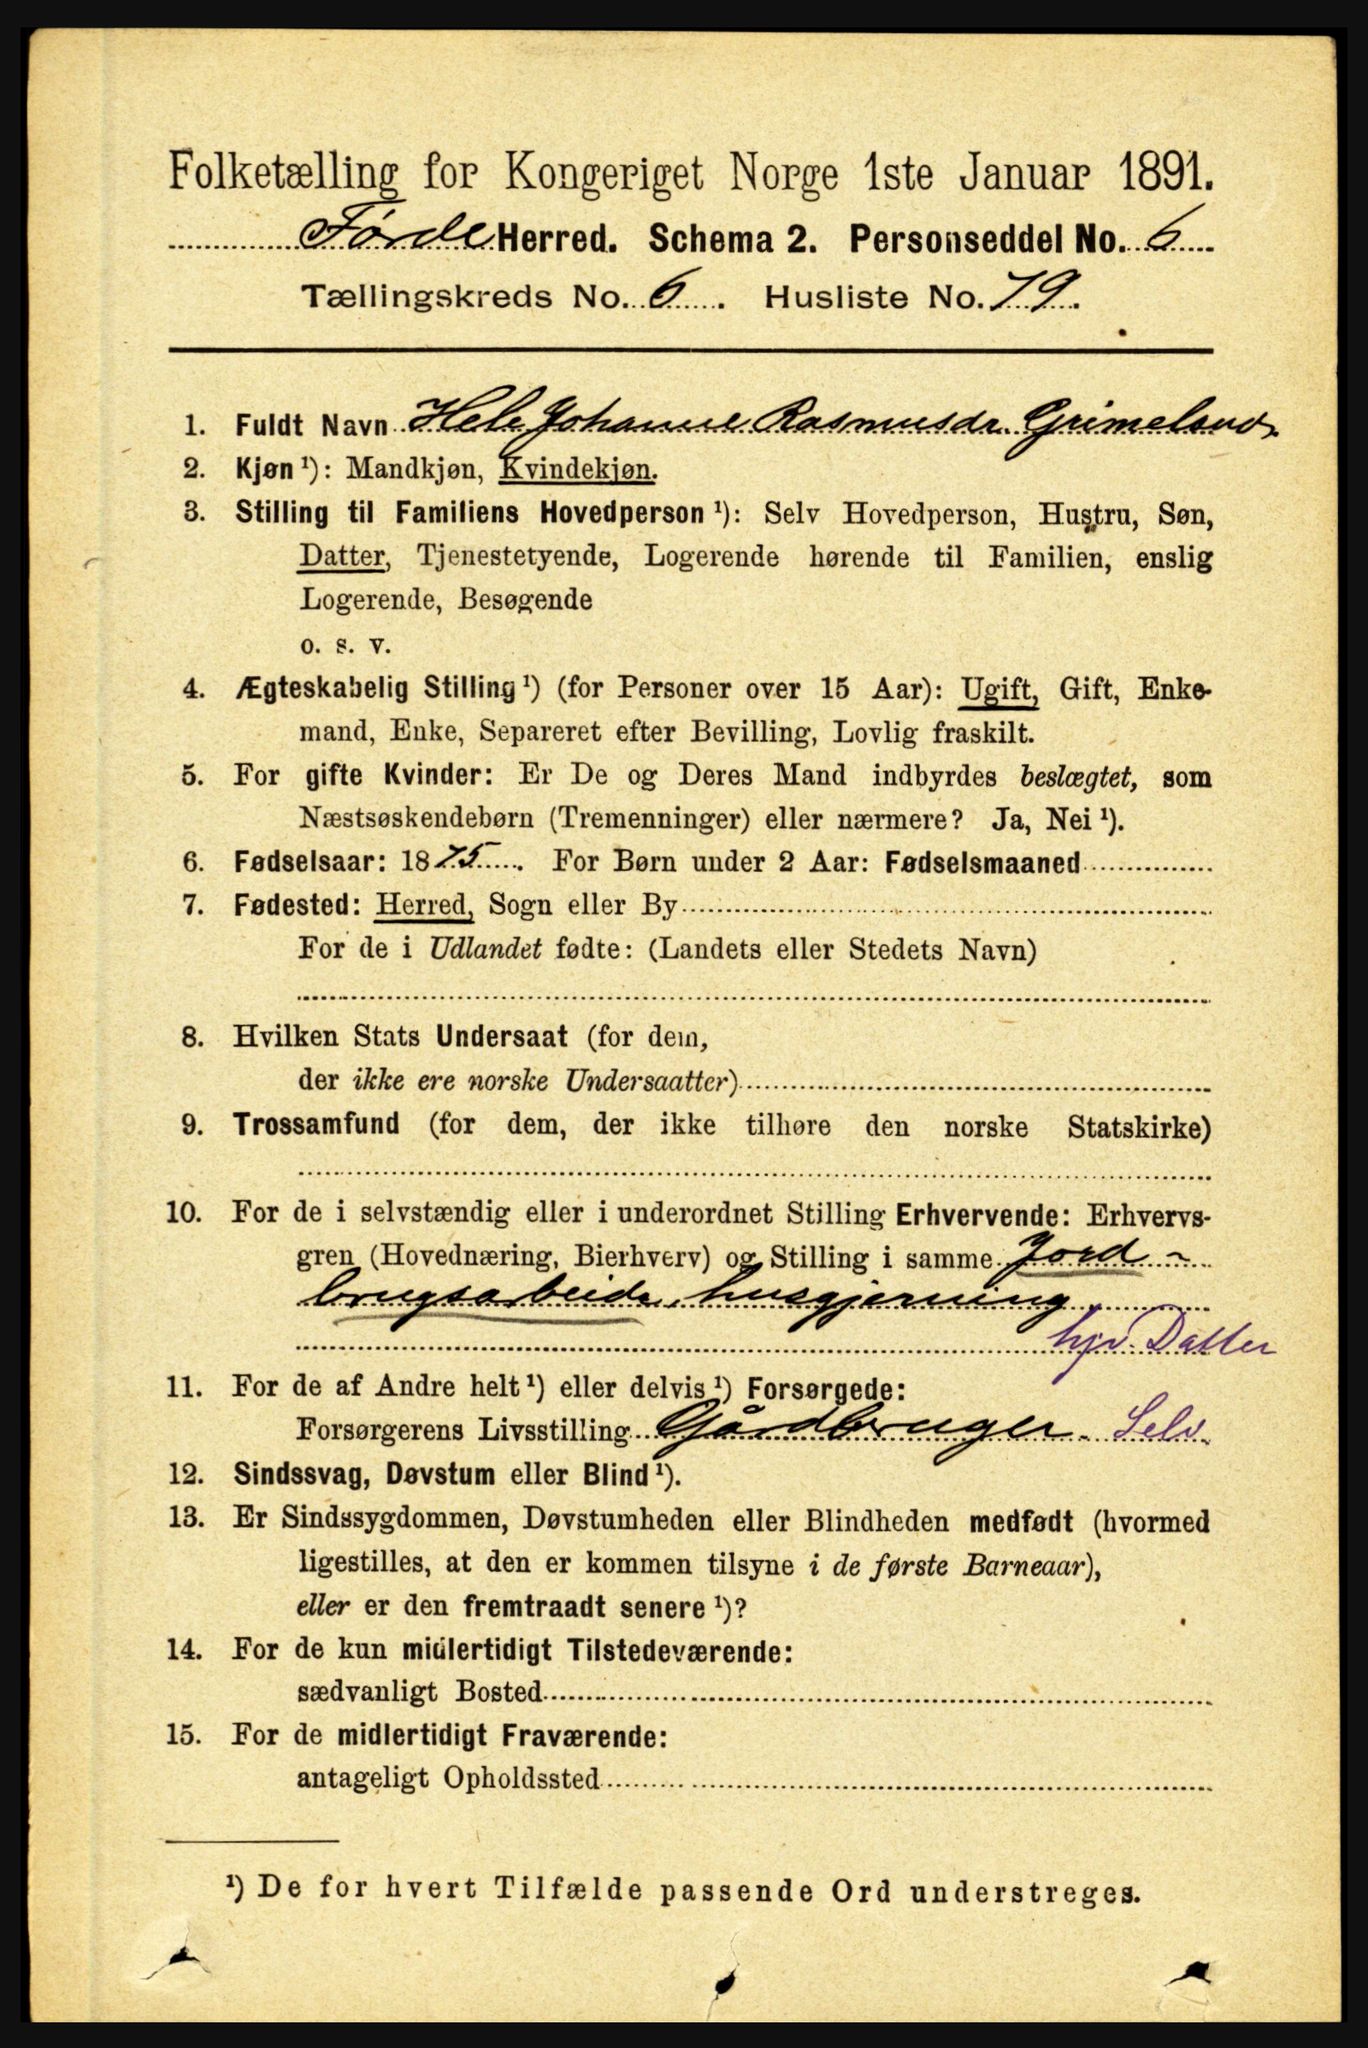 Folketælling for Kongeriget Norge 1ste Januar 1891.
Førde Herred. Schema 2. Personseddel No. 6
Tællingskreds No. 6. Husliste No. 79.
1. Fuldt Navn Hele Johanne Rasmusdr. Grimelund
2. Kjøn ¹): Mandkjøn, Kvindekjøn.
3. Stilling til Familiens Hovedperson ¹): Selv Hovedperson, Hustru, Søn,
Datter, Tjenestetyende, Logerende hørende til Familien, enslig
Logerende, Besøgende
o. s. v.
4. Ægteskabelig Stilling ¹) (for Personer over 15 Aar): Ugift, Gift, Enke-
mand, Enke, Separeret efter Bevilling, Lovlig fraskilt.
5. For gifte Kvinder: Er De og Deres Mand indbyrdes beslægtet, som
Næstsøskendebørn (Tremenninger) eller nærmere? Ja, Nei ¹).
6. Fødselsaar: 1875. For Børn under 2 Aar: Fødselsmaaned
7. Fødested: Herred, Sogn eller By
For de i Udlandet fødte: (Landets eller Stedets Navn)
8. Hvilken Stats Undersaat (for dem,
der ikke ere norske Undersaatter)
9. Trossamfund (for dem, der ikke tilhøre den norske Statskirke)
10. For de i selvstændig eller i underordnet Stilling Erhvervende: Erhvervs-
gren (Hovednæring, Bierhverv) og Stilling i samme Jord-
brugsarbeide, husgjerning
hjv. Datter
11. For de af Andre helt ¹) eller delvis ¹) Forsørgede:
Forsørgerens Livsstilling Gårdbruger. Selv.
12. Sindssvag, Døvstum eller Blind ¹).
13. Er Sindssygdommen, Døvstumheden eller Blindheden medfødt (hvormed
ligestilles, at den er kommen tilsyne i de første Barneaar),
eller er den fremtraadt senere ¹)?
14. For de kun midlertidigt Tilstedeværende:
sædvanligt Bosted
15. For de midlertidigt Fraværende:
antageligt Opholdssted
¹) De for hvert Tilfælde passende Ord understreges.